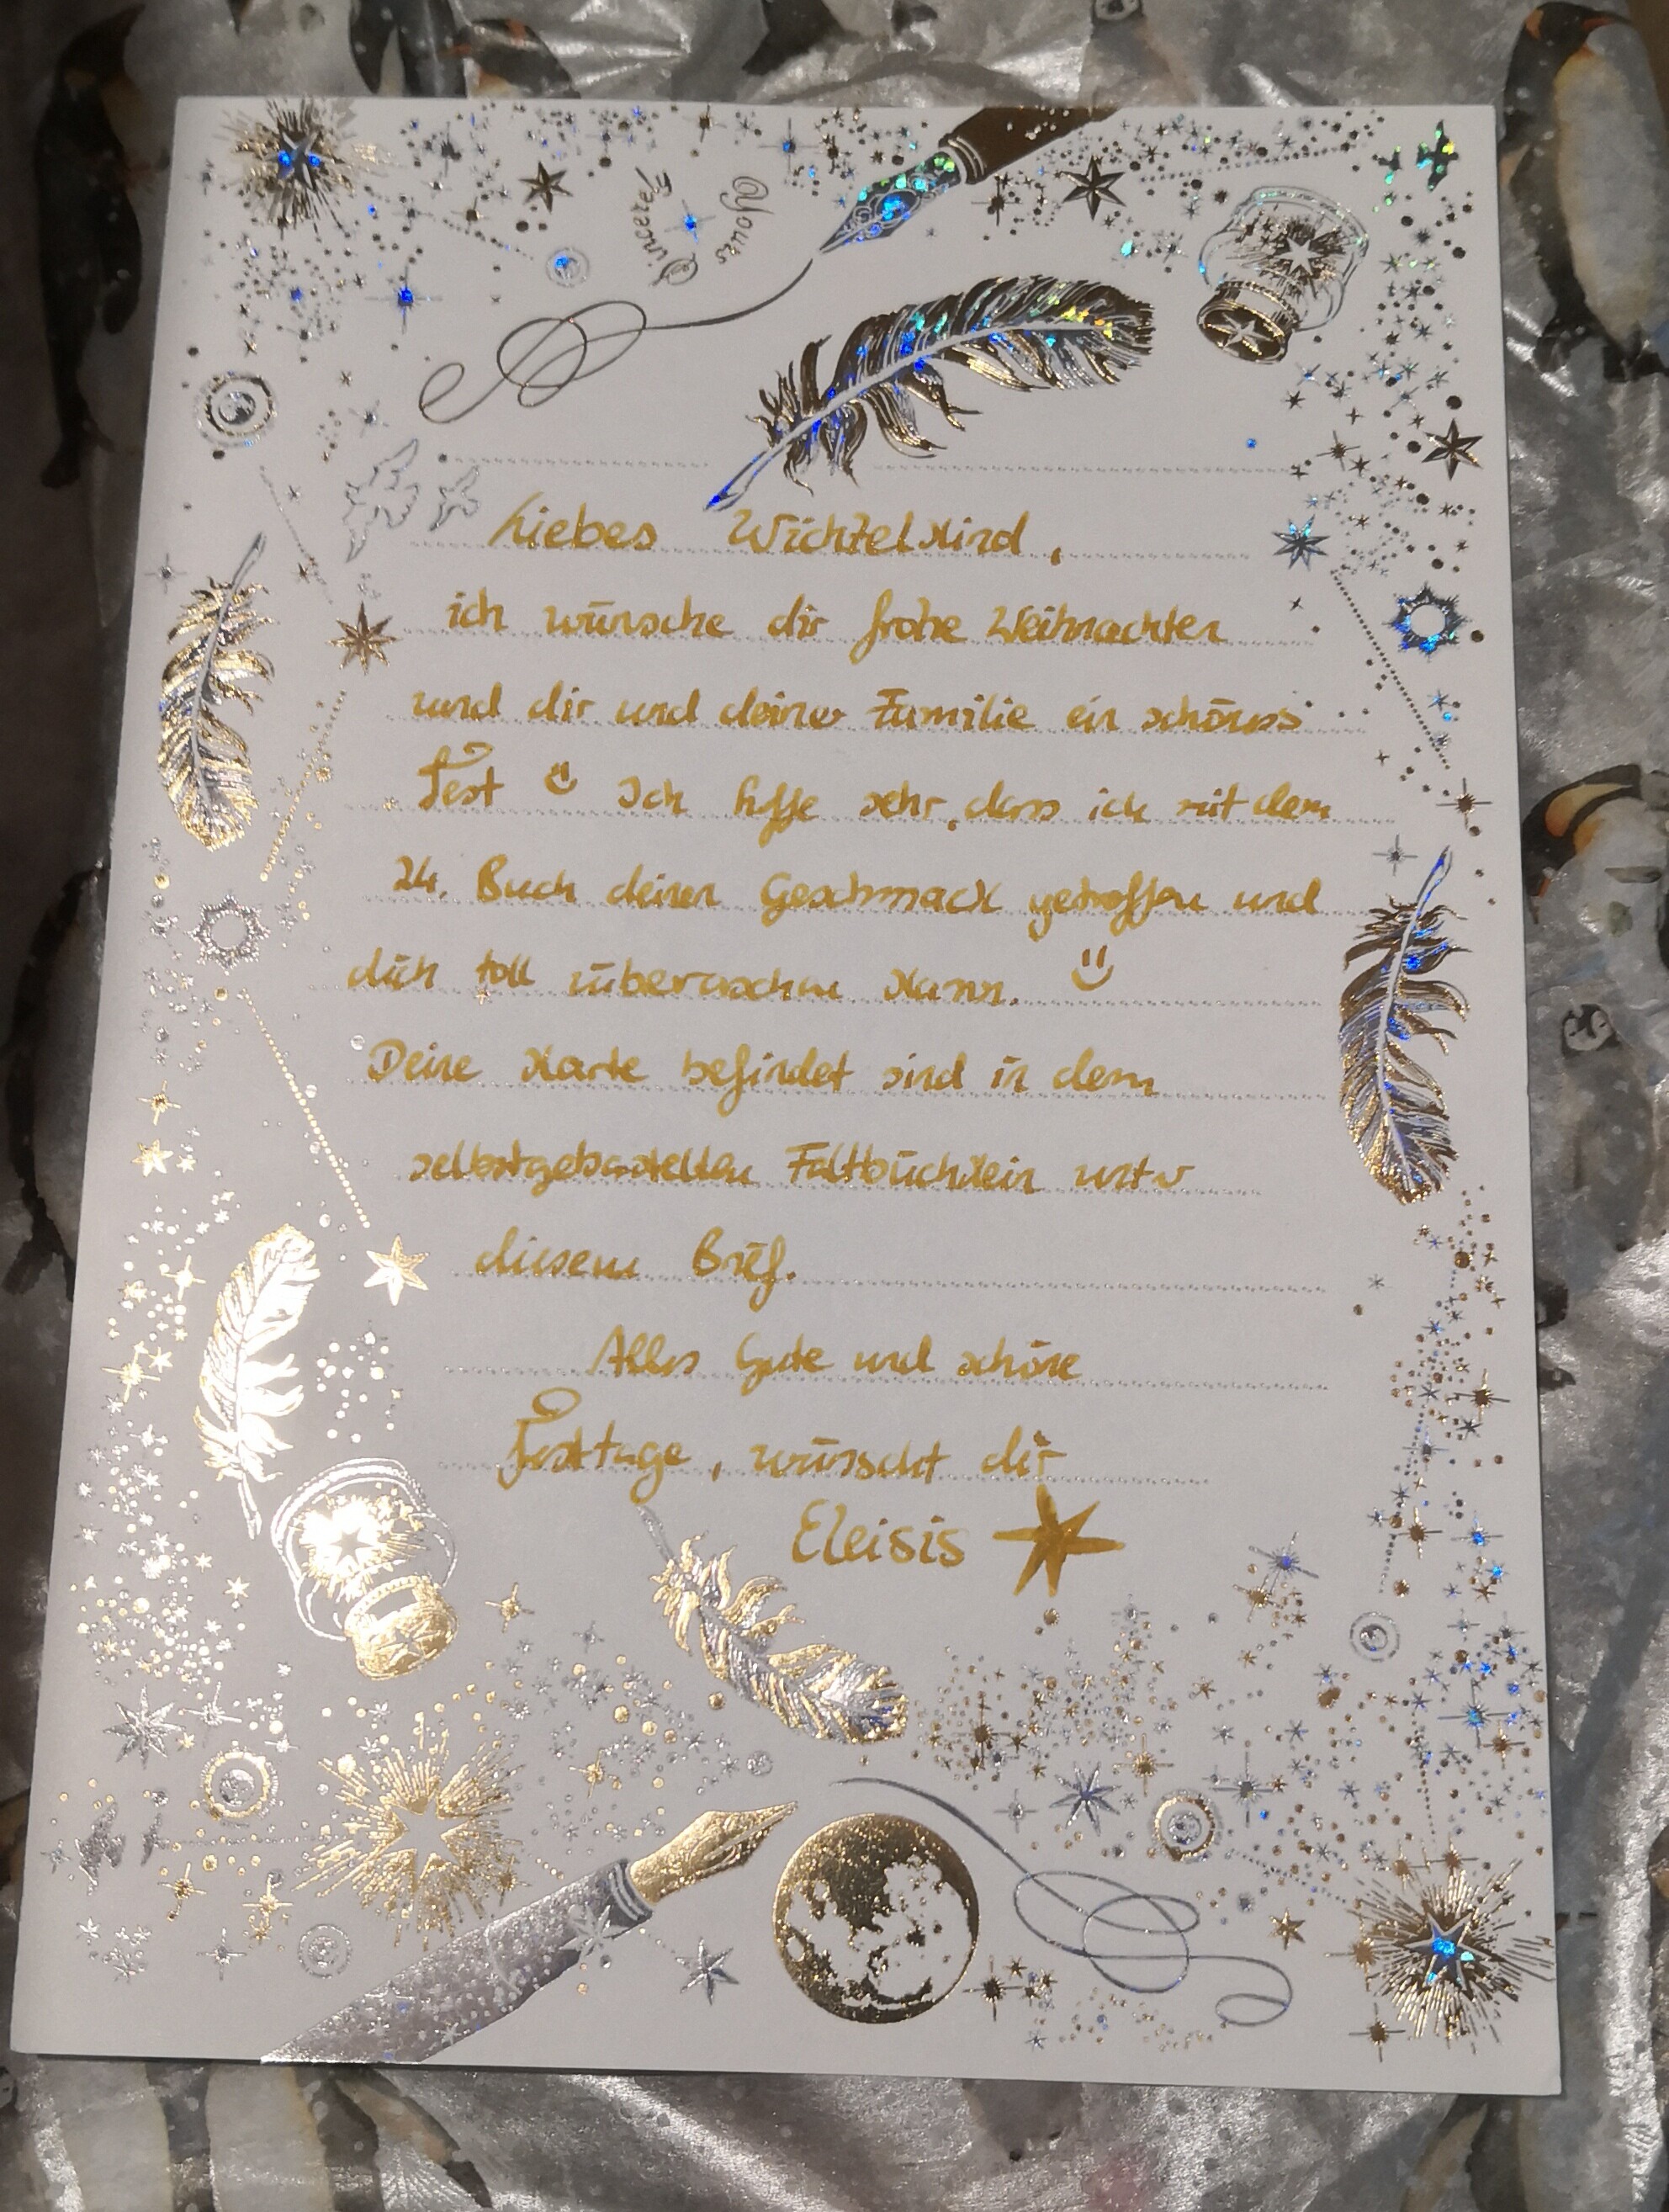 Yours Sincerely
Liebes Wichtelkind,
ich wünsche dir frohe Weihnachten
und dir und deiner Familie ein schönes
Fest ☺ Ich hoffe sehr, dass ich mit dem
24. Buch deinen Geschmack getroffen und
dich toll überraschen kann. ☺
Deine Karte befindet sind in dem
selbstgebastelten Faltbüchlein unter
diesem Brief.
Alles Gute und schöne
Festtage, wünscht dir
Eleisis